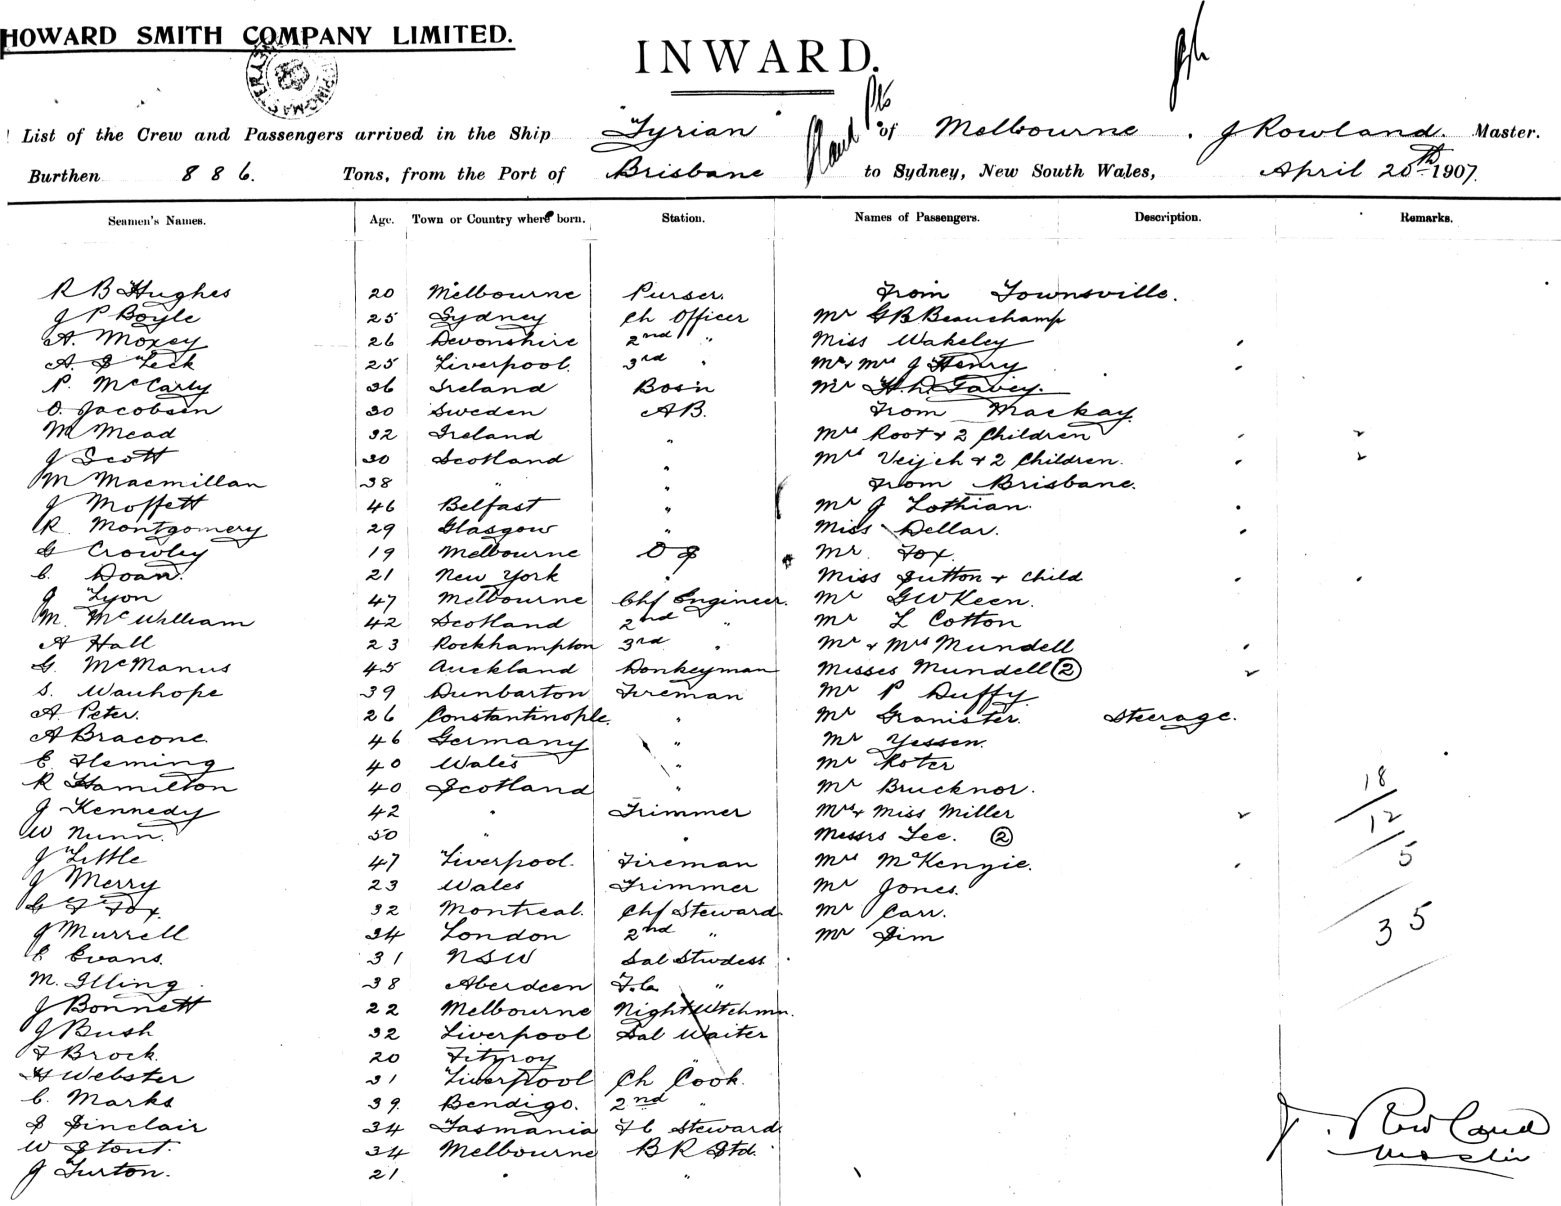 HOWARD SMITH COMPANY LIMITED.
INWARD.
List of the Crew and Passengers arrived in the Ship "Tyrian" of Melbourne. J Rowland. Master.
Burthen 886. Tons, from the Port of Brisbane and Pts to Sydney, New South Wales, April 20th 1907.
Seamen's Names. Age. Town or Country where born. Station. Names of Passengers. Description. Remarks.
R B Hughes 20 Melbourne Purser. From Townsville.
J P Boyle 25 Sydney Ch Officer Mr G B Beauchamp
A. Moxey 26 Devonshire 2nd " Miss Wakeley
A. S Leck 25 Liverpool. 3rd " Mr & Mrs J Henry
P. McCarty 36 Ireland Bosn Mr H. D. Tavey.
O. Jacobsen 30 Sweden AB. From Mackay
M Mead 32 Ireland " Mrs Root & 2 Children
J Scott 30 Scotland " Mrs Veijch & 2 Children.
M Macmillan 38 " " From Brisbane.
J Moffett 46 Belfast " Mr J Lothian.
R. Montgomery 29 Glasgow " Miss Dellar.
G Crowley 19 Melbourne O S Mr. Fox.
C. Doan. 21 New York " Miss Sutton & Child
J Lyon 47 Melbourne Chf Engineer. Mr G W Keen.
M. McWilliam 42 Scotland 2nd " Mr L Cotton
A Hall 23 Rockhampton 3rd " Mr & Mrs Mundell
G. McManus 45 Auckland Donkeyman Misses Mundell (2)
S. Wauhope 39 Dunbarton Fireman Mr P Duffy.
A. Peter. 26 Constantinople. " Mr Granister. Steerage.
A Bracone. 46 Germany " Mr Yessen.
E Fleming 40 Wales " Mr Koter
R Hamilton 40 Scotland " Mr Brucknor. 18
J Kennedy 42 " Trimmer Mrs & Miss Miller 12
W Nunn. 50 " " Messrs Lee. (2)
J Little 47 Liverpool. Fireman Mrs McKenzie. 5
J Merry 23 Wales Trimmer Mr Jones.
G F Fox. 32 Montreal. Chf Steward Mr Carr. 35
J Murrell 34 London 2nd " Mr Sim
E Evans. 31 NSW Sal Stwdess
M. Illing 38 Aberdeen F.C. "
J Bonnett 22 Melbourne Night Wtchmn.
J Bush 32 Liverpool Sal Waiter
F Brock. 20 Fitzroy "
H Webster 31 Liverpool Ch Cook.
C. Marks 39. Bendigo. 2nd "
S Sinclair 34 Tasmania F C Steward
W Stout. 34 Melbourne B R Std.
J Turton. 21 " "
J. Rowland
Master